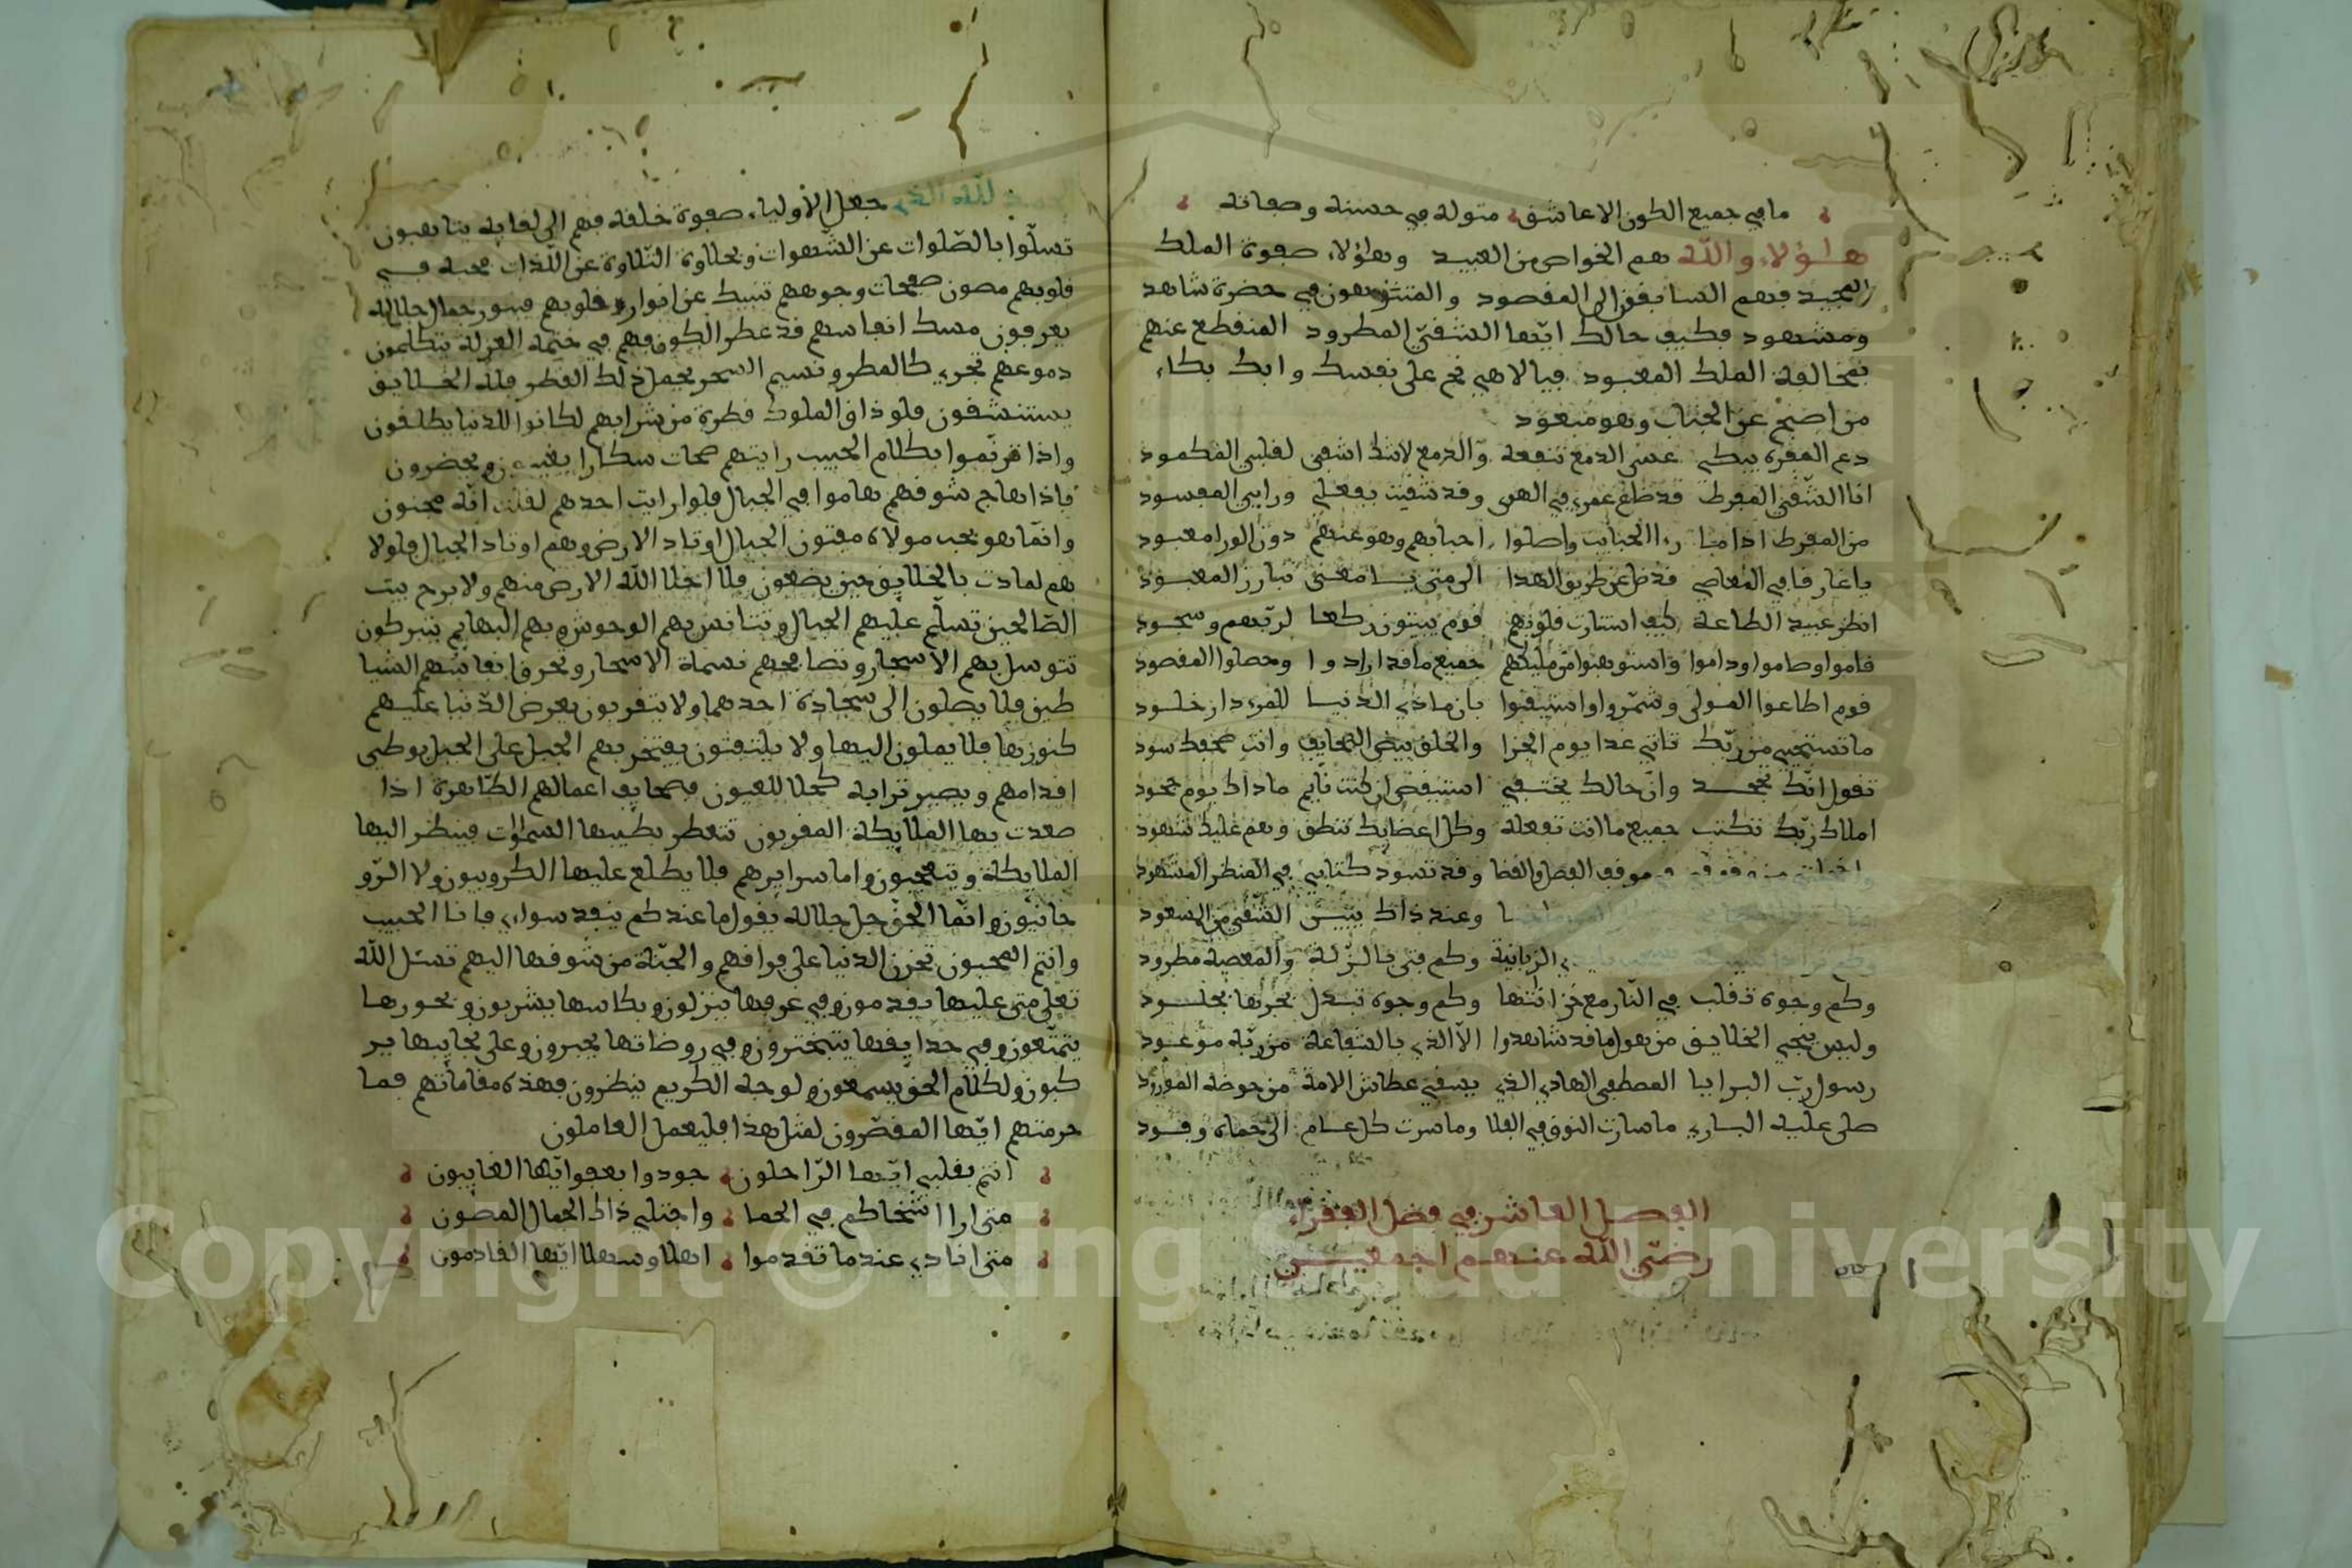 ما في جميع الكون الا عاشق متوله في حسنه وصفاته
هاؤلاء والله هم الخواص من العبيد وهاؤلاء صفوة الملك
المجيد فهم السابقون الى المقصود والمتنزهون في حضرة شاهد
ومشهود فكيف حالك ايّها الشقيّ المطرود المنقطع عنهم
بمخالفة الملك المعبود فيا لاهي نح على نفسك وابك بكاء
من اضحى عن الجناب وهو مبعود
دع المقرح يبكي عسى الدمع تنفعه والدمع لاشك اشفى لقلبي المكمود
انا الشّقي المفرط قد ضاع عمري في الهوى وقد شقيت بفعلي ورايي المفسود
من المفرط اذا ما راا الحبايب واصلوا احبابهم وهو عنهم دون الورا مبعود
يا غارقا في المعاصي قد ضل عن طريق الهدا الى متى يا معنى تبارز المعبود
انظر عبيد الطاعة كيف استنارت قلوبهم قوم يبيتون ركعا لربّهم وسجود
قاموا وصاموا وداموا واستوهبوا من مليكهم جميع ما قد ارادوا وحصلوا المقصود
قوم اطاعوا المولى وشمّروا واستيقنوا بان ماذي الدنيا للمرء دار خلود
ما تستحيي من ربّك تاتي غدا يوم الجزا والخلق بيض الصحايف وانت صحفك سود
تقول انّك تجحد وان حالك يختفي استيقض ان كنت نايم ماذاك يوم جحود
املاك ربّك تكتب جميع ما انت تفعله وكل اعضايك تنطق وهم عليك شهود
موقف الفصل والقضا وقد تسود كتابي في المنظر المشهود
وعند ذاك يبين الشّقي من المسعود
الزبانية وكم فتى بالزلة والمعصية مطرود
وكم وجوه تقلب في النّار مع خزانتها وكم وجوه تبدل بحرّها بخلود
وليس ينجي الخلايق من هول ما قد شاهدوا الا الذي بالشفاعة من ربّه موعود
رسول ربّ البرايا المصطفى الهادي الذي يسقي عطاش الامة من حوضه المورود
صلى عليه الباري ما سارت النوق في الفلا وما سرت كل عام الى حماه وفود
الفصل العاشر في فضل الفقراء
رضي الله عنهم اجمعين
الحمد لله الذي جعل الاولياء صفوة خلقه فهم الى لقايه يتاهبون
تسلّوا بالصّلوات عن الشّهوات وبحلاوة التّلاوة عن اللّذات محبة في
قلوبهم مصون صفحات وجوههم تنبيك عن انوار قلوبهم فبنور جمال جلاله
يعرفون مسك انفاسهم قد عطر الكون فهم في خيمة العزلة يتكلمون
دموعهم تجري كالمطر ونسيم السحر يحمل ذلك القطر فله الخلايق
يستنشقون فلو ذاق الملوك قطرة من شرابهم لكانوا للدنيا يطلقون
واذا ترنّموا بكلام الحبيب رايتهم صحات سكارا يغيبون ويحضرون
فاذا هاج شوقهم هاموا في الجبال فلو ارايت احدهم لقلت انّه مجنون
وانّما هو بحب مولاه مفتون الجبال اوتاد الارض وهم اوتاد الجبال فلولا
هم لمادت بالخلايق حين يضعون فلا اخلا الله الارض منهم ولا برح بيت
الصّالحين تسلّم عليهم الجبال وتتانس بهم الوحوش وبهم البهايم يتبركون
تتوسل بهم الاسحار وتصافحهم نسماة الاسحار وتحرق انفاسهم الشيا
طين فلا يصلون الى سجادة احدهم ولا يتقربون يعرض الدّنيا عليهم
كنوزها فلا يميلون اليها ولا يلتفتون يفتخر بهم الجبل على الجبل بوطي
اقدامهم ويصير ترابه كحلا للعيون فصحايف اعمالهم الطّاهرة اذا
صعدت بها الملايكة المقربون تتعطر بطيبها السموات فينظر اليها
الملايكة ويتعجبون واما سرايرهم فلا يطلع عليها الكروبيون ولا الرّو
حانيّون وانّما الحق جل جلاله يقول ما عندكم ينفد سواي فانا الحبيب
وانتم المحبون تحزن الدنيا على فراقهم والجنّة من شوقها اليهم تسئل الله
تعلى متى عليها يقدمون وفي غرفها ينزلون وبكاسها يشربون وبحورها
يتمتّعون وفي حدايقها يتبخترون وفي روضاتها يحبرون وعلى نجايبها ير
كبون ولكلام الحق يسمعون ولوجه الكريم ينظرون فهذه مقاماتهم فما
حرمتهم ايّها المقصّرون لمثل هذا فليعمل العاملون
انتم بقلبي ايّها الرّاحلون جودوا بعفو ايّها الغايبون
متى ارا اشخاكم في الحما واجتلي ذاك الجمال المصون
متى انادي عند ما تقدموا اهلا وسهلا ايّها القادمون
Copyright © King Saud University